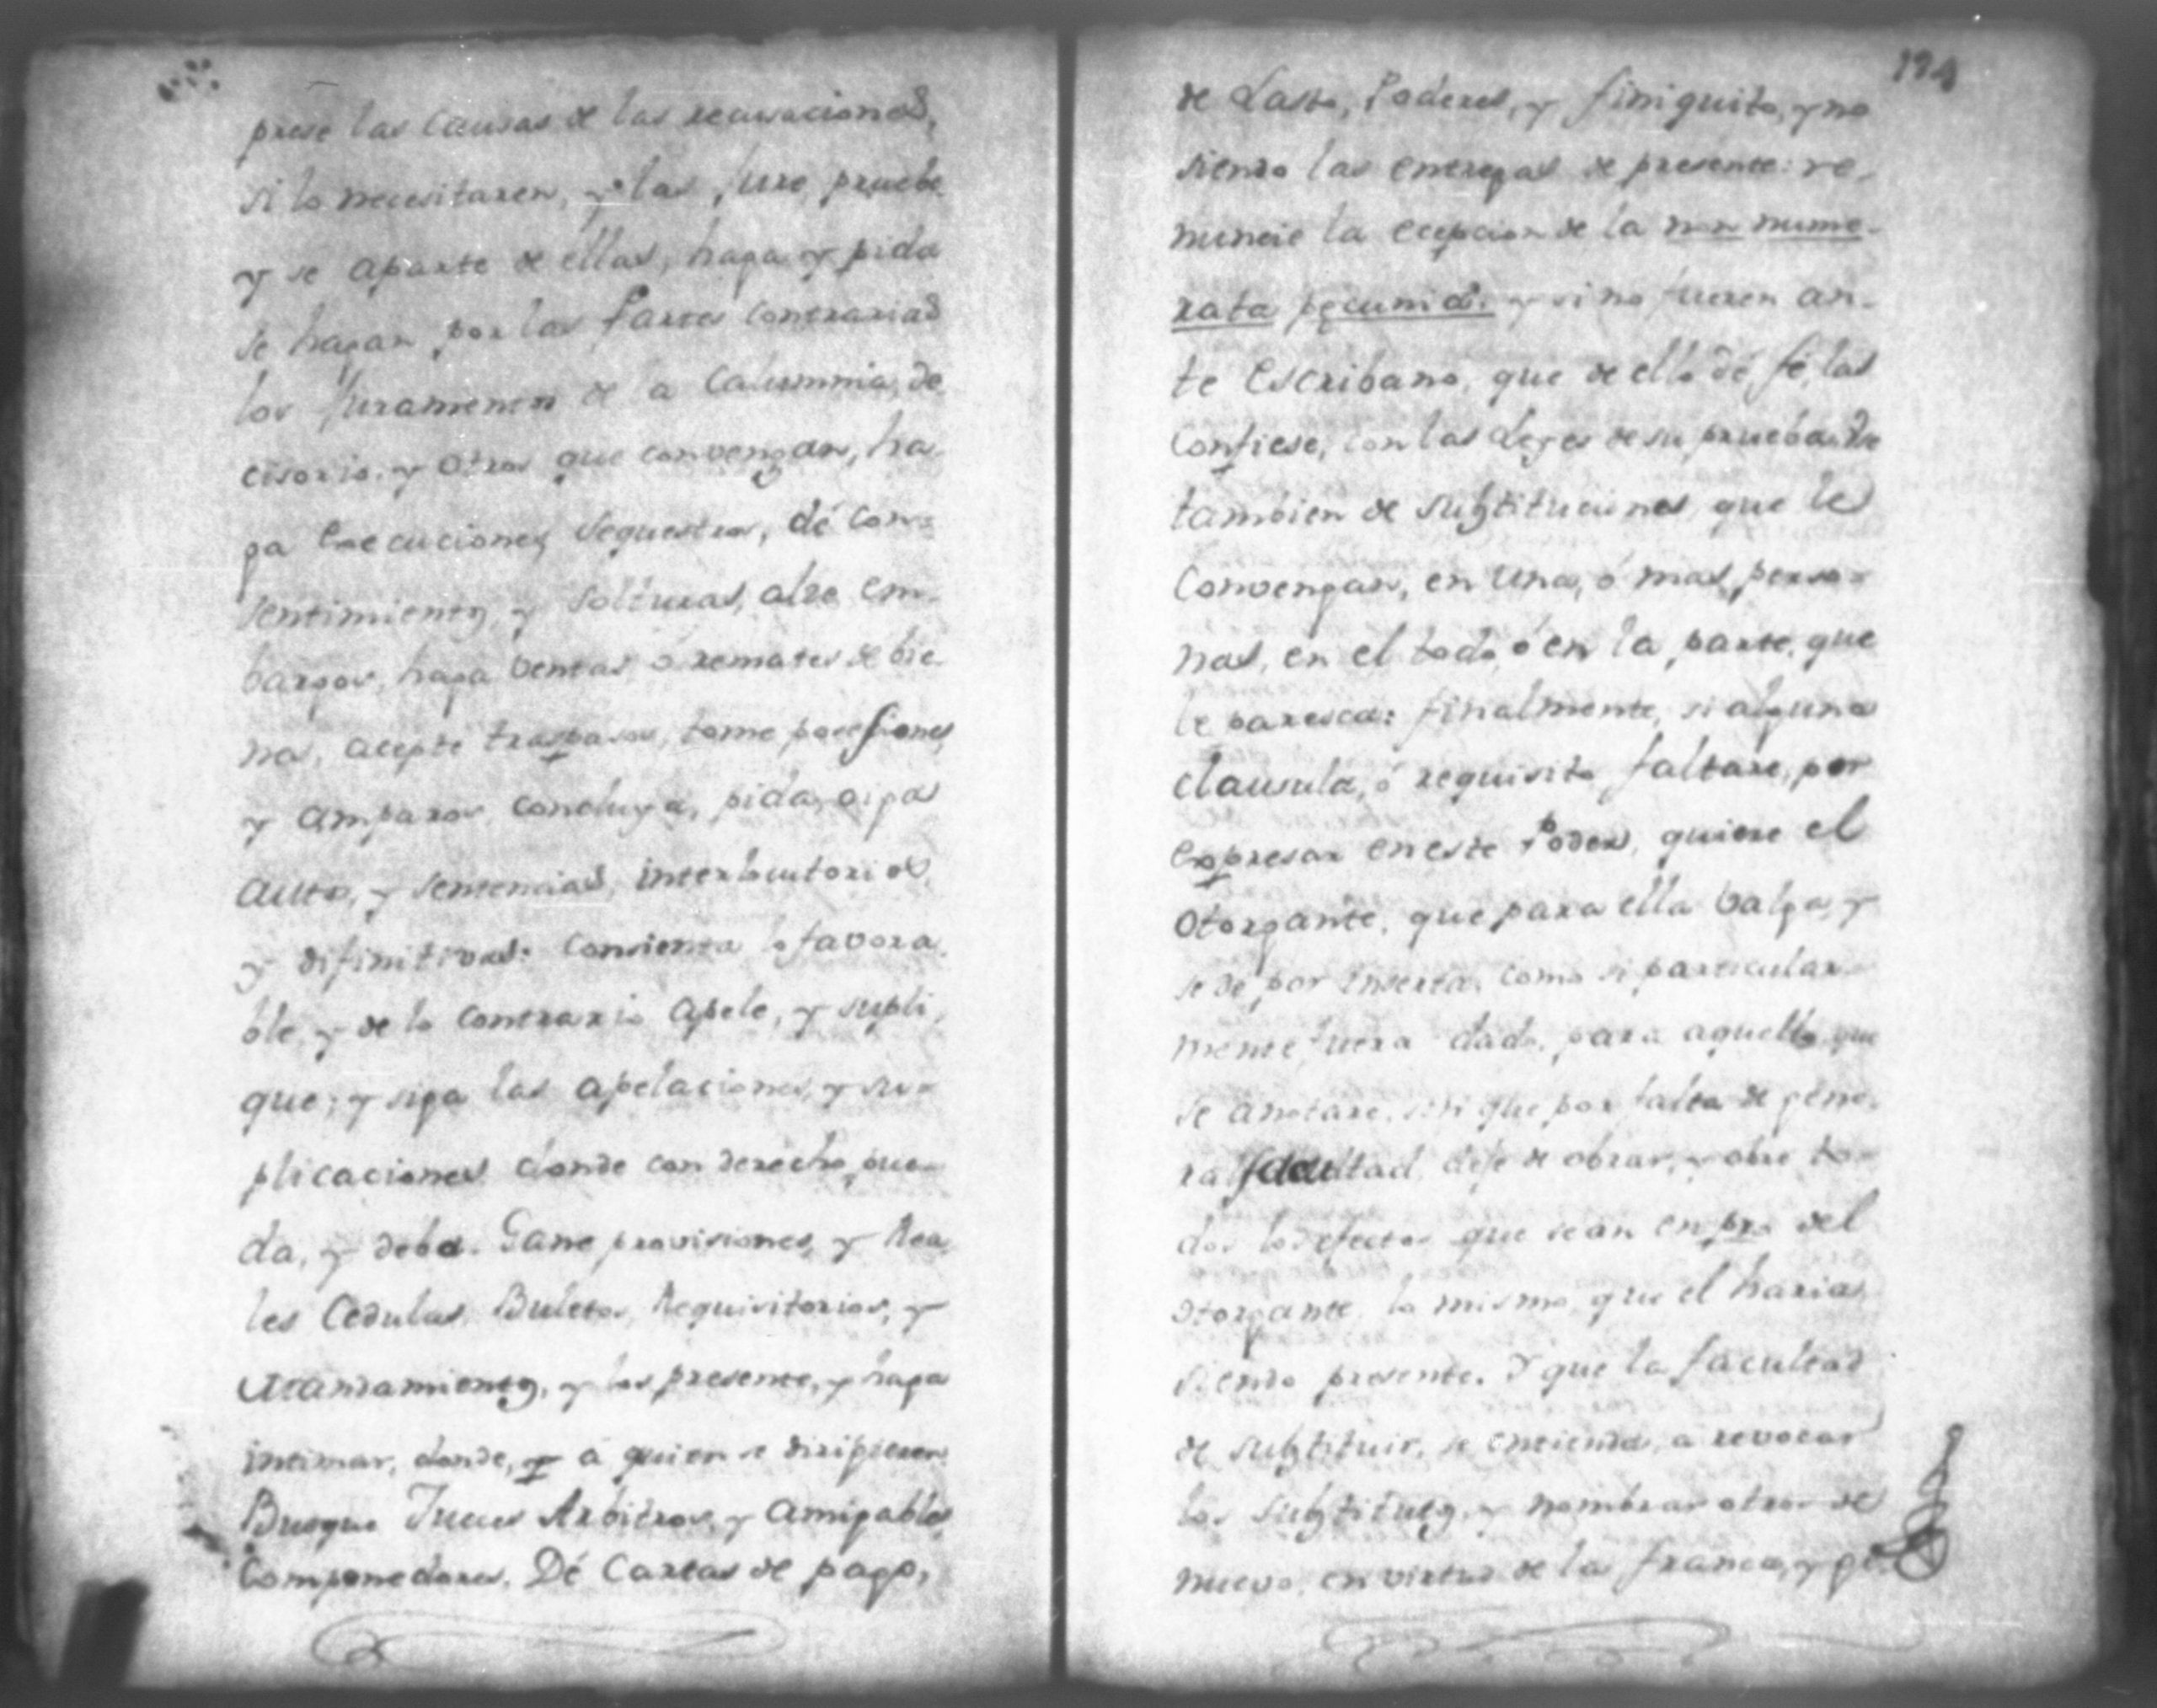 prese las causas de las recusaciones,
si lo necesitaren, y las jure, pruebe
y se aparte de ellas, haga y pida
se hagan por las Partes contrarias
los juramentos de a Calumnia, de
cisorio, y otros que convengan, ha
ga Execuciones, Sequestros, dé con=
sentimientos, y Solturas, alze em-
bargos, haga ventas ó remates de bie
nes, acepte traspasos, tome posesiones
y amparos, concluya, pida, oiga
autos, y sentencias, interlocutorias
y difinitivas: Consienta lo favora
ble y de lo contrario apele, y supli
que; y siga las apelaciones, y su=
plicaciones donde con derecho pue
da, y deba. Gane provisiones, y Rea
les Cedulas, Buletos, Requisitorias, y
Mandamientos, y los presente, y haga
intimar, donde, y a quien se dirigieren
Busque Jueces Arbitros, y amigables
Componedores. Dé Cartas de pago,
194
de Lasto, Poderes, y finiquito, y no
siendo las entregas de presente: re-
nuncie la ecepcion de la non nume-
rata pecunia: y si no fueren an-
te Escribano, que de ello dé fé, las
Confiese, con las Leyes de su prueba
tambien de subtituciones que le
Convengan, en una, ó mas perso=
nas, en el todo, ó en la parte, que
le paresca: finalmente, si alguna
clausula, ó requisito faltare, por
Expresar en este Poder, quiere el
Otorgante, que para ella valga, y
se dé por inserta, como si particular
mente fuera dado, para aquello que
se anotare, sin que por falta de gene
ral facultad, deje de obrar, y obre to=
dos los efectos que sean en pro del
otorgante, lo mismo que el haria
siendo presente. Y que la facultad
de subtituir, se entienda, a revocar
los subtitutos, y nombrar otros de
nuevo, en virtud de la franca, y ge